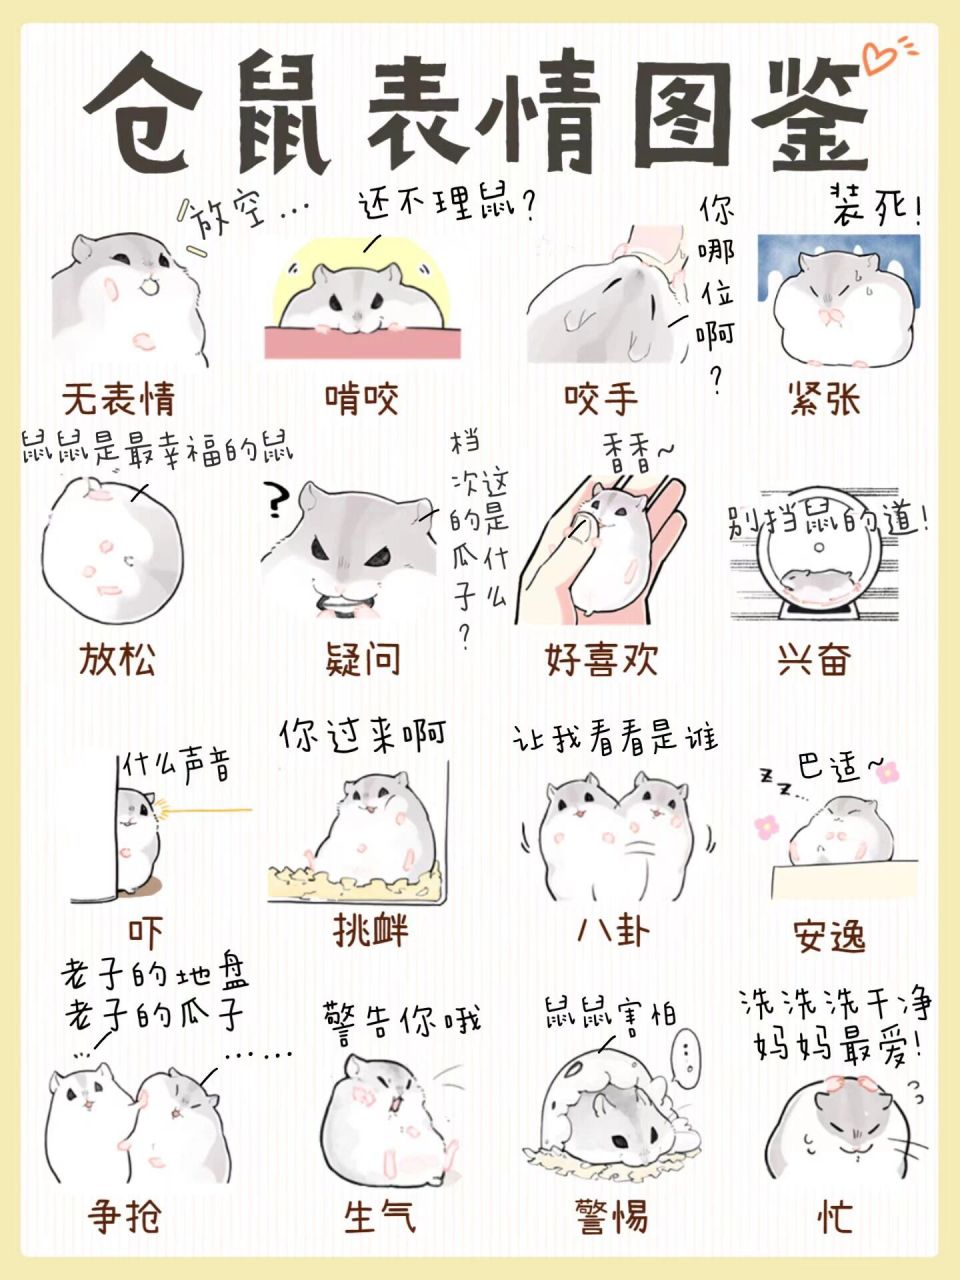 仓鼠表情图鉴
放空...
还不理鼠？
你哪位啊？
装死！
无表情
啃咬
咬手
紧张
鼠鼠是最幸福的鼠
?
这是什么
档次的瓜子？
香香~
别挡鼠的道！
放松
疑问
好喜欢
兴奋
什么声音
你过来啊
让我看看是谁
巴适~
z z...
吓
挑衅
八卦
安逸
老子的地盘
老子的瓜子
......
警告你哦
鼠鼠害怕
...
洗洗洗干净
妈妈最爱！
争抢
生气
警惕
忙